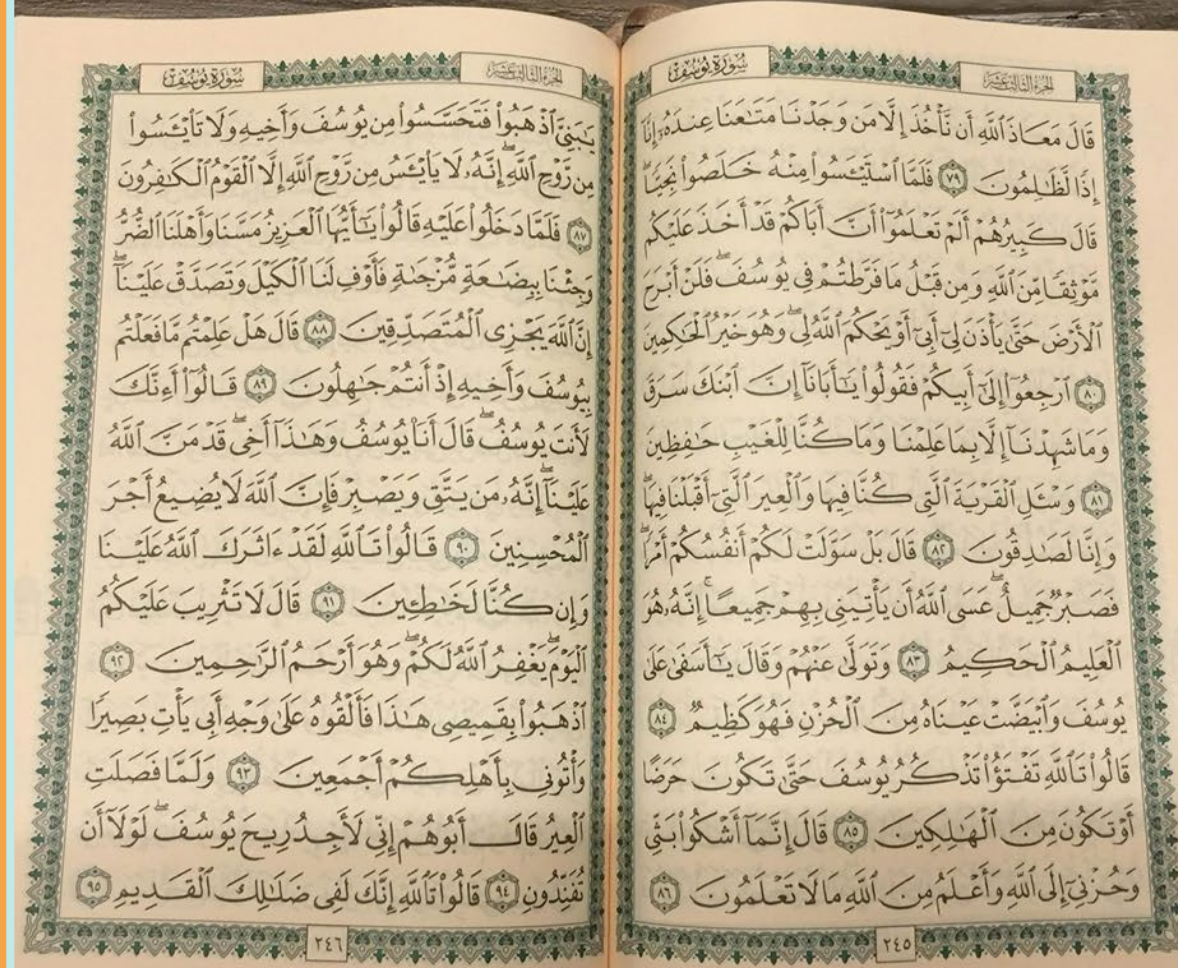 سُورَةُ يُوسُفَ
الجزء الثالث عشر
قَالَ مَعَاذَ ٱللَّهِ أَن نَّأْخُذَ إِلَّا مَن وَجَدْنَا مَتَٰعَنَا عِندَهُۥٓ إِنَّآ
إِذًا لَّظَٰلِمُونَ ٧٩ فَلَمَّا ٱسْتَيْـَٔسُوا۟ مِنْهُ خَلَصُوا۟ نَجِيًّا ۖ
قَالَ كَبِيرُهُمْ أَلَمْ تَعْلَمُوٓا۟ أَنَّ أَبَاكُمْ قَدْ أَخَذَ عَلَيْكُم
مَّوْثِقًا مِّنَ ٱللَّهِ وَمِن قَبْلُ مَا فَرَّطتُمْ فِى يُوسُفَ ۖ فَلَنْ أَبْرَحَ
ٱلْأَرْضَ حَتَّىٰ يَأْذَنَ لِىٓ أَبِىٓ أَوْ يَحْكُمَ ٱللَّهُ لِى ۖ وَهُوَ خَيْرُ ٱلْحَٰكِمِينَ
٨٠ ٱرْجِعُوٓا۟ إِلَىٰٓ أَبِيكُمْ فَقُولُوا۟ يَٰٓأَبَانَآ إِنَّ ٱبْنَكَ سَرَقَ
وَمَا شَهِدْنَآ إِلَّا بِمَا عَلِمْنَا وَمَا كُنَّا لِلْغَيْبِ حَٰفِظِينَ
٨١ وَسْـَٔلِ ٱلْقَرْيَةَ ٱلَّتِى كُنَّا فِيهَا وَٱلْعِيرَ ٱلَّتِىٓ أَقْبَلْنَا فِيهَا ۖ
وَإِنَّا لَصَٰدِقُونَ ٨٢ قَالَ بَلْ سَوَّلَتْ لَكُمْ أَنفُسُكُمْ أَمْرًا ۖ
فَصَبْرٌ جَمِيلٌ ۖ عَسَى ٱللَّهُ أَن يَأْتِيَنِى بِهِمْ جَمِيعًا ۚ إِنَّهُۥ هُوَ
ٱلْعَلِيمُ ٱلْحَكِيمُ ٨٣ وَتَوَلَّىٰ عَنْهُمْ وَقَالَ يَٰٓأَسَفَىٰ عَلَىٰ
يُوسُفَ وَٱبْيَضَّتْ عَيْنَاهُ مِنَ ٱلْحُزْنِ فَهُوَ كَظِيمٌ ٨٤
قَالُوا۟ تَٱللَّهِ تَفْتَؤُا۟ تَذْكُرُ يُوسُفَ حَتَّىٰ تَكُونَ حَرَضًا
أَوْ تَكُونَ مِنَ ٱلْهَٰلِكِينَ ٨٥ قَالَ إِنَّمَآ أَشْكُوا۟ بَثِّى
وَحُزْنِىٓ إِلَى ٱللَّهِ وَأَعْلَمُ مِنَ ٱللَّهِ مَا لَا تَعْلَمُونَ ٨٦
٢٤٥
الجزء الثالث عشر
سُورَةُ يُوسُفَ
يَٰبَنِىَّ ٱذْهَبُوا۟ فَتَحَسَّسُوا۟ مِن يُوسُفَ وَأَخِيهِ وَلَا تَا۟يْـَٔسُوا۟
مِن رَّوْحِ ٱللَّهِ ۖ إِنَّهُۥ لَا يَا۟يْـَٔسُ مِن رَّوْحِ ٱللَّهِ إِلَّا ٱلْقَوْمُ ٱلْكَٰفِرُونَ
٨٧ فَلَمَّا دَخَلُوا۟ عَلَيْهِ قَالُوا۟ يَٰٓأَيُّهَا ٱلْعَزِيزُ مَسَّنَا وَأَهْلَنَا ٱلضُّرُّ
وَجِئْنَا بِبِضَٰعَةٍ مُّزْجَىٰةٍ فَأَوْفِ لَنَا ٱلْكَيْلَ وَتَصَدَّقْ عَلَيْنَآ ۖ
إِنَّ ٱللَّهَ يَجْزِى ٱلْمُتَصَدِّقِينَ ٨٨ قَالَ هَلْ عَلِمْتُم مَّا فَعَلْتُم
بِيُوسُفَ وَأَخِيهِ إِذْ أَنتُمْ جَٰهِلُونَ ٨٩ قَالُوٓا۟ أَءِنَّكَ
لَأَنتَ يُوسُفُ ۖ قَالَ أَنَا۠ يُوسُفُ وَهَٰذَآ أَخِى ۖ قَدْ مَنَّ ٱللَّهُ
عَلَيْنَآ ۖ إِنَّهُۥ مَن يَتَّقِ وَيَصْبِرْ فَإِنَّ ٱللَّهَ لَا يُضِيعُ أَجْرَ
ٱلْمُحْسِنِينَ ٩٠ قَالُوا۟ تَٱللَّهِ لَقَدْ ءَاثَرَكَ ٱللَّهُ عَلَيْنَا
وَإِن كُنَّا لَخَٰطِـِٔينَ ٩١ قَالَ لَا تَثْرِيبَ عَلَيْكُمُ
ٱلْيَوْمَ ۖ يَغْفِرُ ٱللَّهُ لَكُمْ ۖ وَهُوَ أَرْحَمُ ٱلرَّٰحِمِينَ ٩٢
ٱذْهَبُوا۟ بِقَمِيصِى هَٰذَا فَأَلْقُوهُ عَلَىٰ وَجْهِ أَبِى يَأْتِ بَصِيرًا
وَأْتُونِى بِأَهْلِكُمْ أَجْمَعِينَ ٩٣ وَلَمَّا فَصَلَتِ
ٱلْعِيرُ قَالَ أَبُوهُمْ إِنِّى لَأَجِدُ رِيحَ يُوسُفَ ۖ لَوْلَآ أَن
تُفَنِّدُونِ ٩٤ قَالُوا۟ تَٱللَّهِ إِنَّكَ لَفِى ضَلَٰلِكَ ٱلْقَدِيمِ ٩٥
٢٤٦